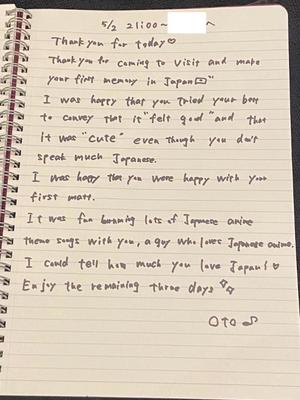 5/2 21:00~ ~
Thank you for today♡
Thank you for coming to visit and make
your first memory in Japan🇯🇵"
I was happy that you tried your best
to convey that it "felt good" and that
it was "cute" even though you don't
speak much Japanese.
I was happy that you were happy with your
first matt.
It was fun humming lots of Japanese anime
theme songs with you, a guy who loves Japanese anime.
I could tell how much you love Japan!♡
Enjoy the remaining three days
OTO♫